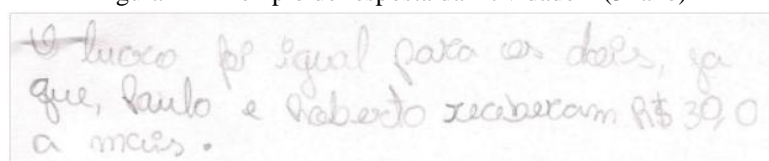 O lucro foi igual para os dois, ja
que, Paulo e Roberto receberam R$ 30,0
a mais.